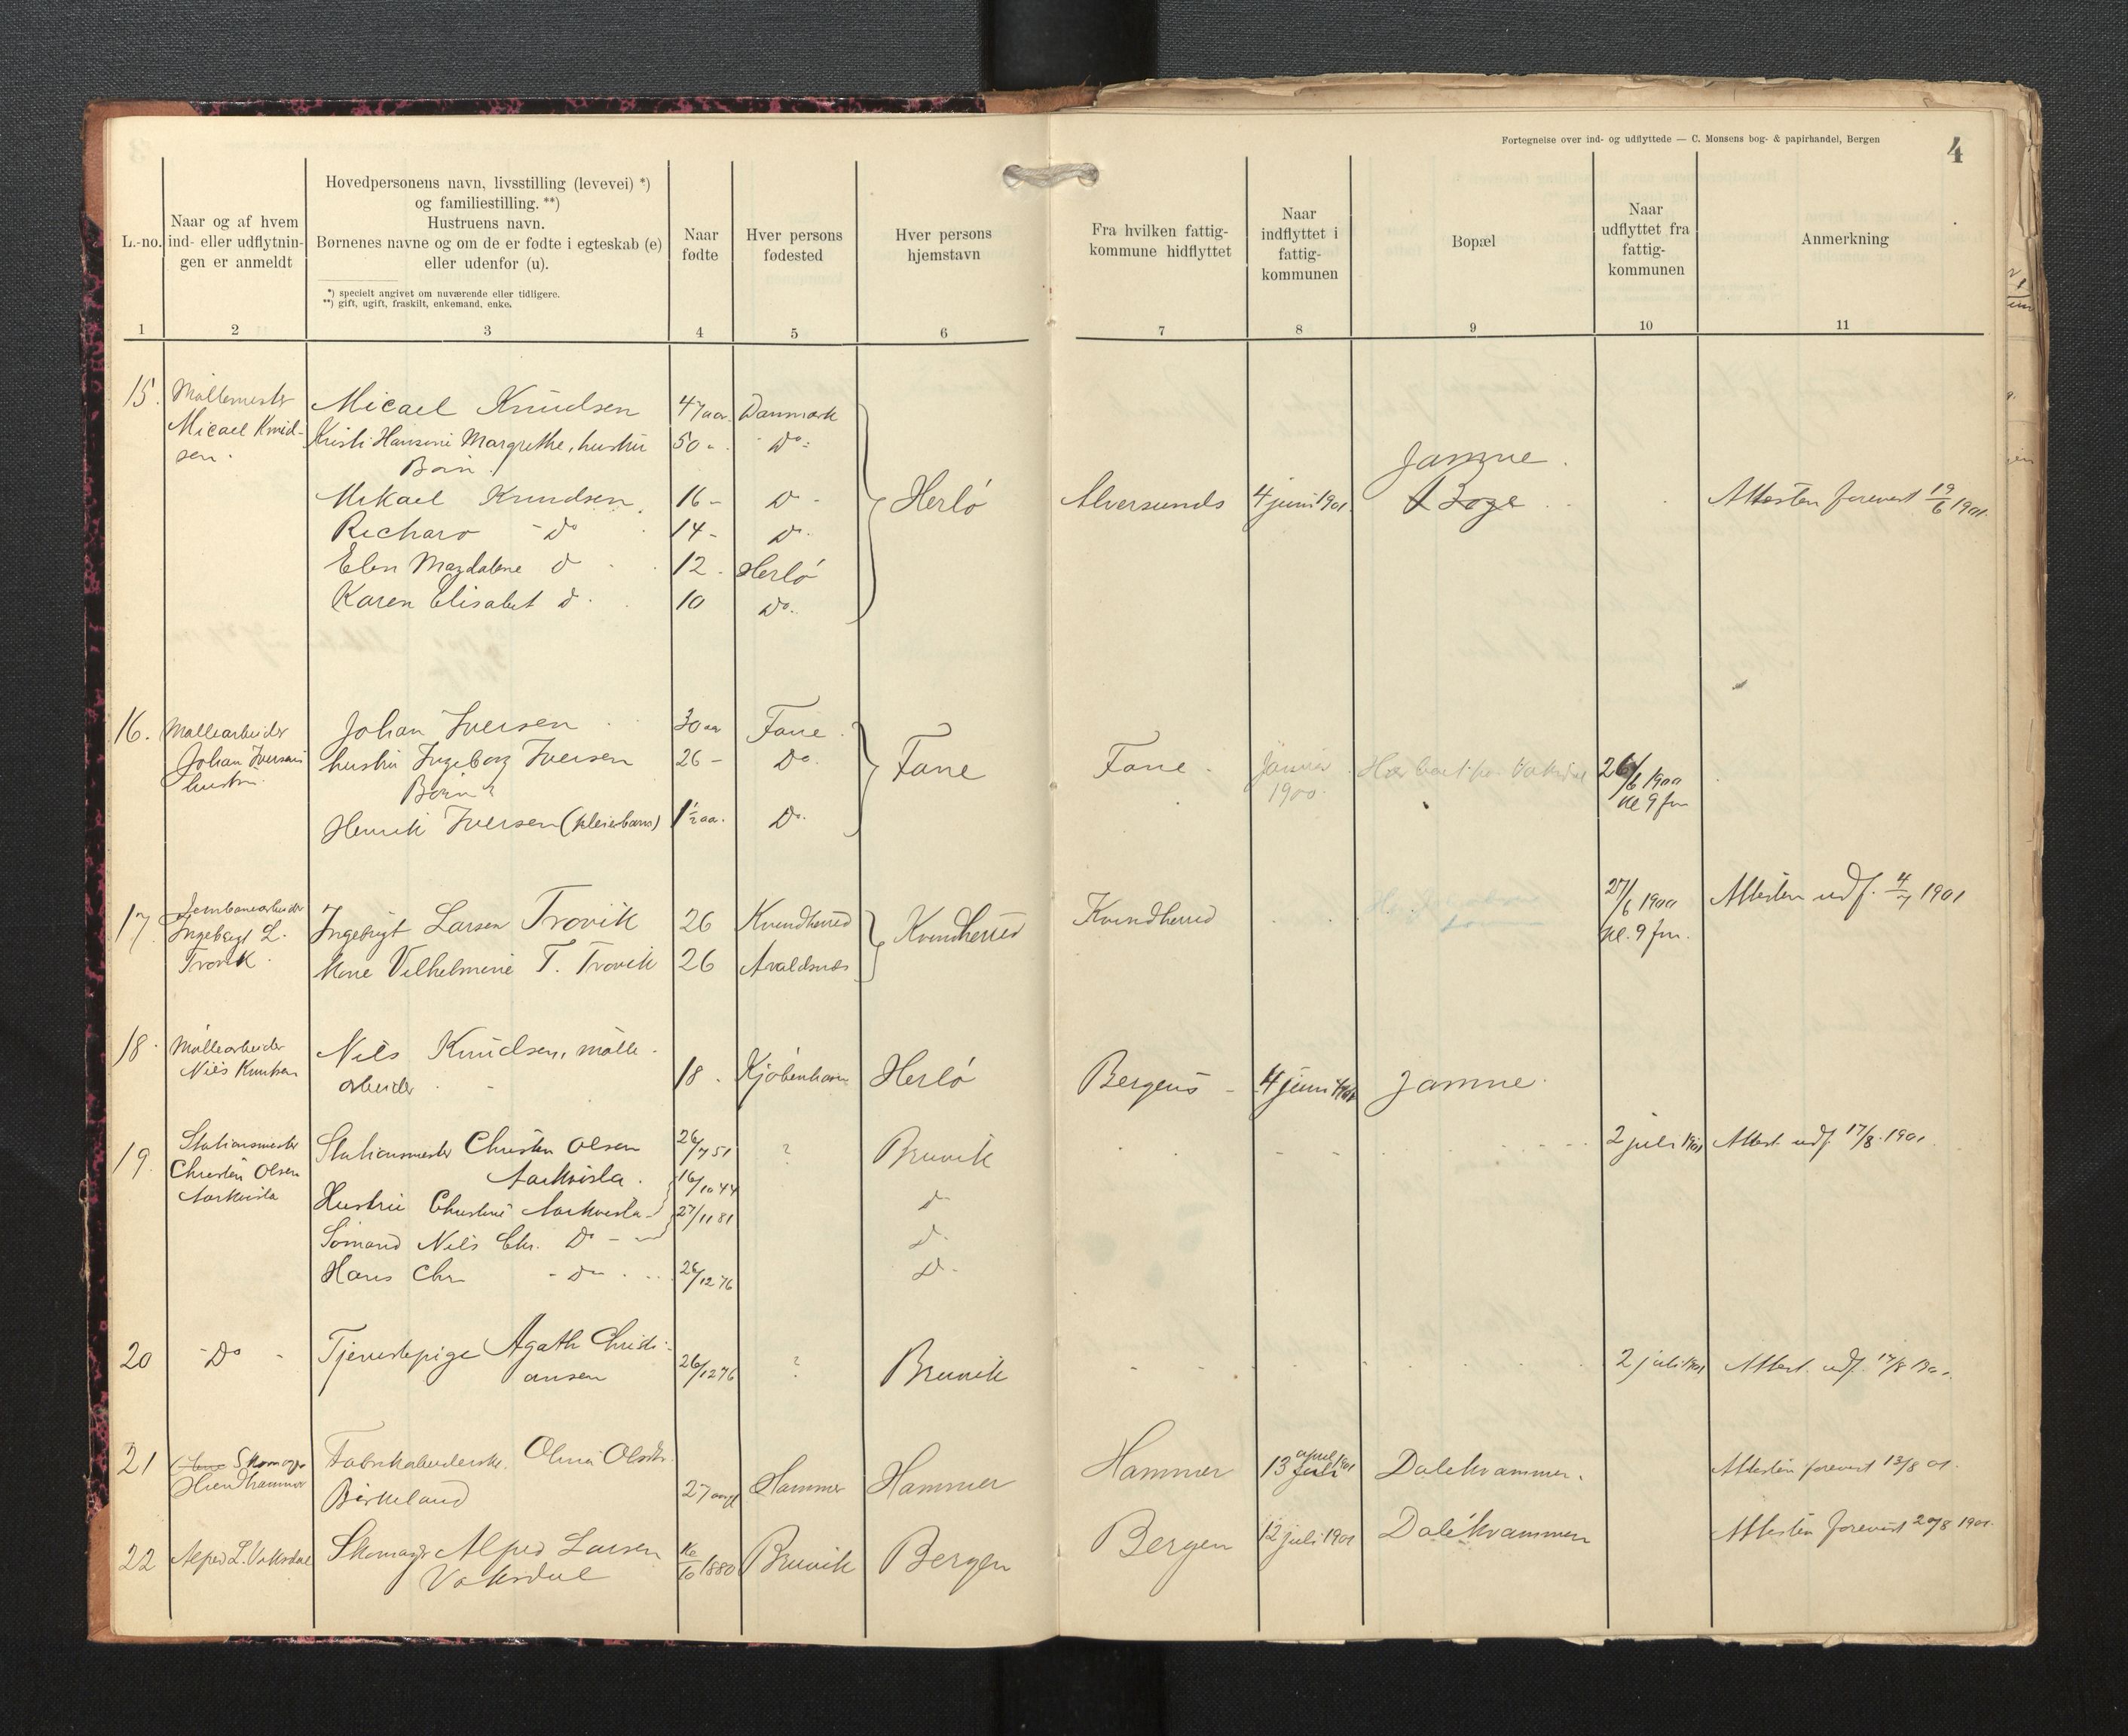 Fortegnelse over ind- og udflyttede — C. Monsens bog- & papirhandel, Bergen
4
L.-no.
Naar og af hvem
ind- eller udflytnin-
gen er anmeldt
Hovedpersonens navn, livsstilling (levevei) *)
og familiestilling. **)
Hustruens navn.
Børnenes navne og om de er fødte i egteskab (e)
eller udenfor (u).
*) specielt angivet om nuværende eller tidligere.
**) gift, ugift, fraskilt, enkemand, enke.
Naar
fødte
Hver persons
fødested
Hver persons
hjemstavn
Fra hvilken fattig-
kommune hidflyttet
Naar
indflyttet i
fattig-
kommunen
Bopæl
Naar
udflyttet fra
fattig-
kommunen
Anmerkning
1 2 3 4 5 6 7 8 9 10 11
15. Møllemester Micael Knudsen 47 aar Danmark
Micael Knud- Kristi Hansine Margrethe, hustru 50 - Do
sen. Børn.
Jamne.
Mikael Knudsen 16 - Do Herlø Alversunds 4 juni 1901 Attesten forevist 19/6 1901.
Richard Do 14 - Do
Elen Magdalene Do 12 - Herlø
Karen Elisabet Do 10 Do
16. Møllearbeider Johan Iversen 30 aar Fane
Johan Iversens hustru Ingeborg Iversen 26 - Do Fane Fane Januar 1900 26/6 1900
hustru Børn kl 9 fm
Henrik Iversen (pleiebarn) 1½ aa. Do
17. Jernbanearbeider
Ingebrigt L. Ingebrigt Larsen Trovik 26 Kvindherred Kvindherred Kvindherred 27/6 1900 Attesten udf. 4/7 1901
Trovik Vilhelmine T. Trovik 26 Avaldsnæs kl. 9 fm.
18. Møllearbeider Nils Knudsen, mølle-
Nils Knudsen arbeider 18 Kjøbenhavn Herlø Bergens 4 juni 1901 Jamne.
19. Stationsmester Stationsmester Christen Olsen 26/7 51 ? Bruvik 2 juli 1901 Attest udf. 17/8 1901
Christen Olsen Aarkvisla 16/10 44
Aarkvisla Hustru Christine Aarkvisla 27/11 81 Do
Sømand Nils Chr. Do Do
Hans Chr Do 26/12 76 Do
20 Do Tjenestepige Agath Christi-
ansen 26/12 76 ? Bruvik 2 juli 1901 Attest. udf. 17/8 1901.
21 Skomager Fabrikarbeiderske. Olina Olsdtr.
Birkeland 27 aar Hammer Hammer Hammer 13 april 1901 Dalekvammen. Attesten forevist 13/8 01.
22 Alfred L. Vaksdal Skomager Alfred Larsen
Vaksdal 16/10 1880 Bruvik Bergen Bergen 12 juli 1901 Dalekvammen Attesten forevist 20/8 1901.